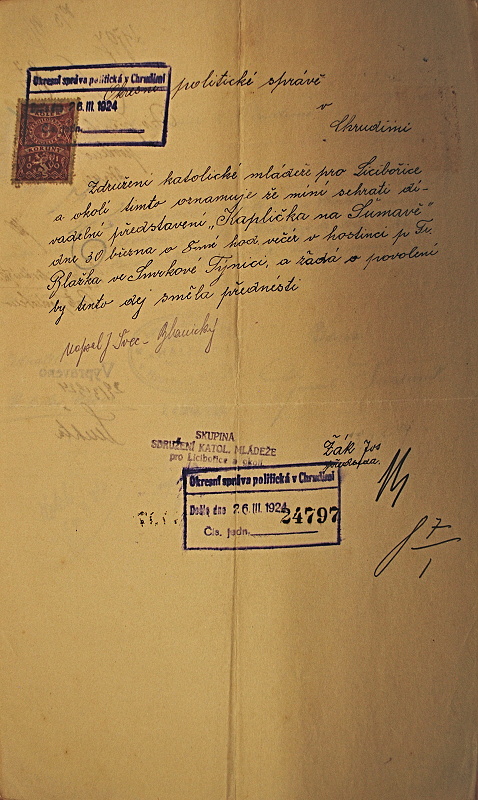 Okresní správa politická v Chrudimi
26. III. 1924
jedn.
KOLEK
KORUNY
Okresní politické správě
v
Chrudimi
Združení katolické mládeže pro Licibořice
a okolí tímto oznamuje že míní sehráti di-
vadelní představení „Kaplička na Šumavě"
dne 30 března o 8mi hod večer v hostinci p. Fr.
Blažka ve Smrkové Týnici, a žádá o povolení
by tento dej směla přednésti
napsal J Švec-Blanický
SKUPINA
SDRUŽENÍ KATOL. MLÁDEŽE
pro Licibořice a okolí
Žák Jos
předseda.
Okresní správa politická v Chrudimi
Došlo dne 26. III. 1924
24797
Čís. jedn.
7
1